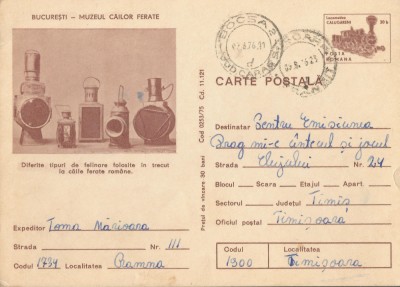 BUCUREȘTI – MUZEUL CĂILOR FERATE
Diferite tipuri de felinare folosite în trecut
la căile ferate române.
Expeditor Toma Mărioara
Strada Nr. 111
Codul 1794 Localitatea Ramna
Prețul de vînzare 30 bani
Cod 0253/75 Cd. 11.121
BOCȘA 2
JUD. CARAȘ S.
TRANZIT
Locomotiva
CĂLUGĂRENI
30 b
POȘTA
ROMÂNĂ
CARTE POȘTALĂ
Destinatar Pentru Emisiunea
Drag mi-e cîntecul și jocul
Strada Clujului Nr. 24
Blocul Scara Etajul Apart.
Sectorul Județul Timiș
Oficiul poștal Timișoara
Codul Localitatea
1900 Timișoara